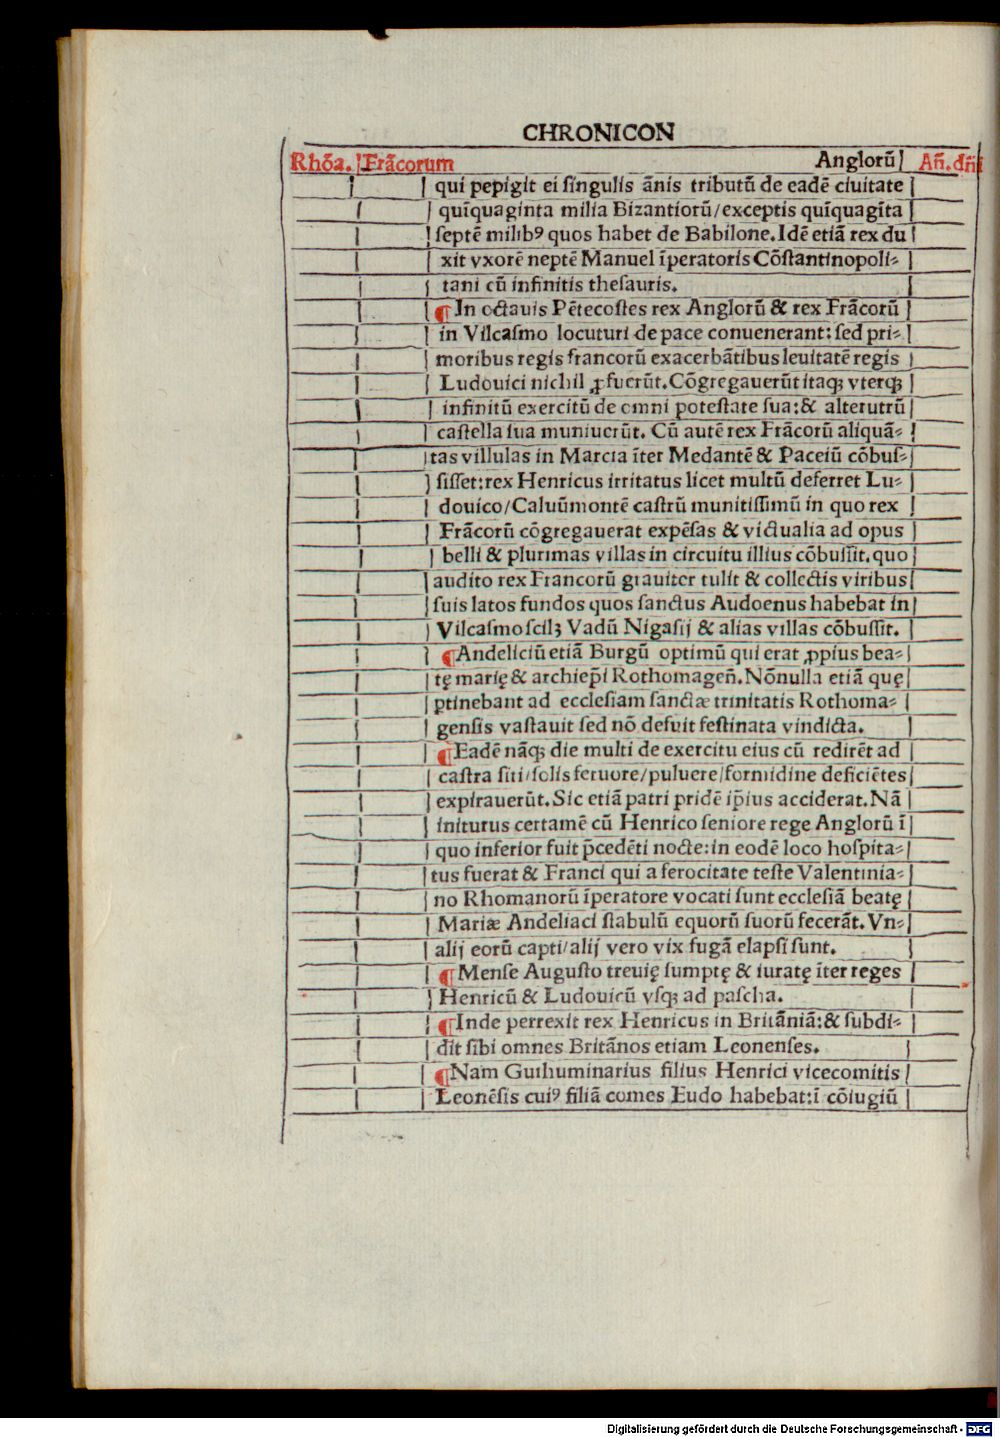 CHRONICON
Rhōa. Frācorum Anglorū Añ. dñi
qui pepigit ei singulis ānis tributū de eadē ciuitate
quīquaginta milia Bizantiorū/exceptis quīquagīta
septē milibꝰ quos habet de Babilone. Idē etiā rex du
xit vxorē neptē Manuel īperatoris Cōstantinopoli⸗
tani cū infinitis thesauris.
¶ In octauis Pētecostes rex Anglorū & rex Frācorū
in Vilcasmo locuturi de pace conuenerant: sed pri⸗
moribus regis francorū exacerbātibus leuitatē regis
Ludouici nichil ꝓfuerūt. Cōgregauerūt itaqꝫ vterqꝫ
infinitū exercitū de omni potestate sua: & alterutrū
castella sua muniuerūt. Cū autē rex Frācorū aliquā⸗
tas villulas in Marcia īter Medantē & Paceiū cōbus⸗
sisset: rex Henricus irritatus licet multū deferret Lu⸗
douico/Caluūmontē castrū munitissimū in quo rex
Frācorū cōgregauerat expēsas & victualia ad opus
belli & plurimas villas in circuitu illius cōbussit. quo
audito rex Francorū grauiter tulit & collectis viribus
suis latos fundos quos sanctus Audoenus habebat in
Vilcasmo scilꝫ Vadū Nigasij & alias villas cōbussit.
¶ Andeliciū etiā Burgū optimū qui erat ꝓpius bea⸗
tę marię & archiep̄i Rothomageñ. Nōnulla etiā quę
ꝑtinebant ad ecclesiam sanctæ trinitatis Rothoma⸗
gensis vastauit sed nō defuit festinata vindicta.
¶ Eadē nāqꝫ die multi de exercitu eius cū redirēt ad
castra siti/solis feruore/puluere/formidine deficiētes
expirauerūt. Sic etiā patri pridē ip̄ius acciderat. Nā
initurus certamē cū Henrico seniore rege Anglorū ī
quo inferior fuit p̄cedēti nocte: in eodē loco hospita⸗
tus fuerat & Franci qui a ferocitate teste Valentinia⸗
no Rhomanorū īperatore vocati sunt ecclesiā beatę
Mariæ Andeliaci stabulū equorū suorū fecerāt. Vn⸗
alij eorū capti/alij vero vix fugā elapsi sunt.
¶ Mense Augusto treuię sumptę & iuratę īter reges
Henricū & Ludouicū vsqꝫ ad pascha.
¶ Inde perrexit rex Henricus in Britāniā: & subdi⸗
dit sibi omnes Britānos etiam Leonenses.
¶ Nam Guihuminarius filius Henrici vicecomitis
Leonēsis cuiꝰ filiā comes Eudo habebat: ī cōiugiū
Digitalisierung gefördert durch die Deutsche Forschungsgemeinschaft - DFG